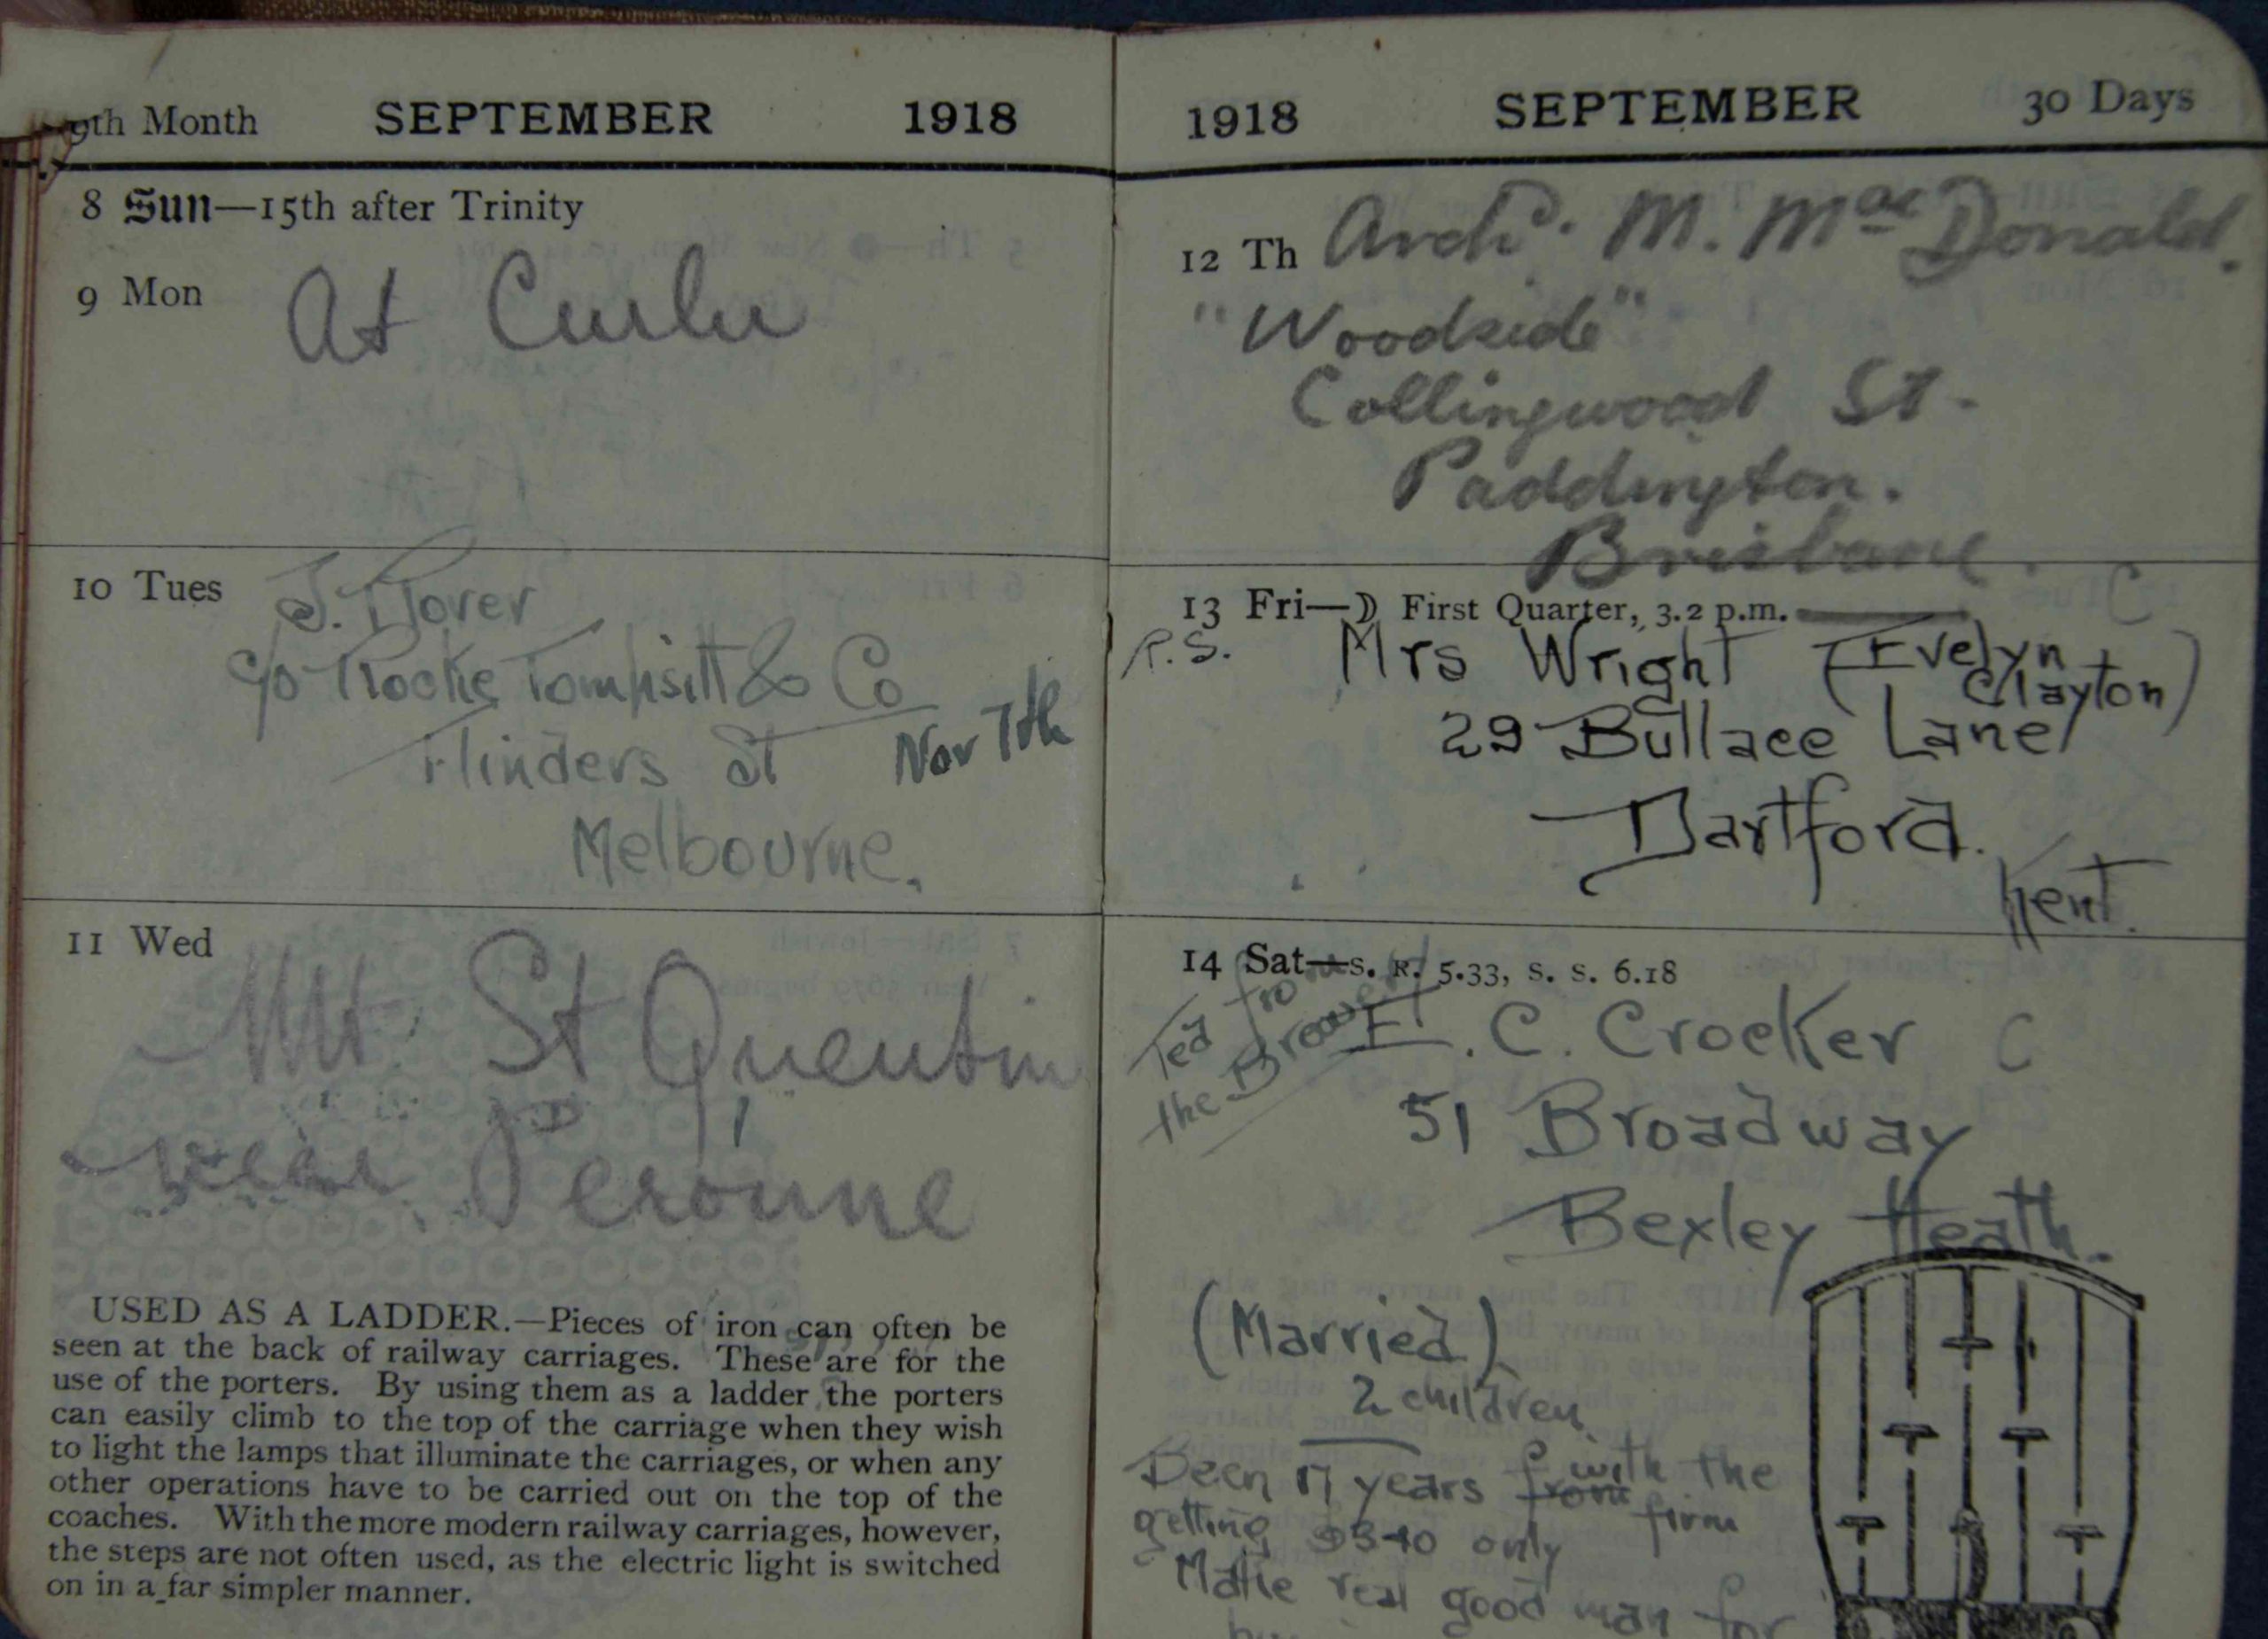 9th Month SEPTEMBER 1918
8 Sun—15th after Trinity
9 Mon
At Curlu
10 Tues
J. Dover
c/o Rocke Tompsitt & Co
Flinders St
Nov 7th
Melbourne.
11 Wed
Mt St Quentin
near Peronne
USED AS A LADDER.—Pieces of iron can often be
seen at the back of railway carriages. These are for the
use of the porters. By using them as a ladder the porters
can easily climb to the top of the carriage when they wish
to light the lamps that illuminate the carriages, or when any
other operations have to be carried out on the top of the
coaches. With the more modern railway carriages, however,
the steps are not often used, as the electric light is switched
on in a far simpler manner.
1918 SEPTEMBER 30 Days
12 Th Archd. M. MacDonald.
"Woodside"
Collingwood St.
Paddington.
Brisbane.
13 Fri—☽ First Quarter, 3.2 p.m. C
P.S. Mrs Wright (Evelyn
Clayton)
29 Bullace Lane
Dartford.
Kent.
14 Sat—S. R. 5.33, S. S. 6.18
Ted from
the Brewery
E. C. Crocker C
51 Broadway
Bexley Heath.
(Married)
2 children
Been 17 years from with the
firm
getting $340 only
Make real good man for